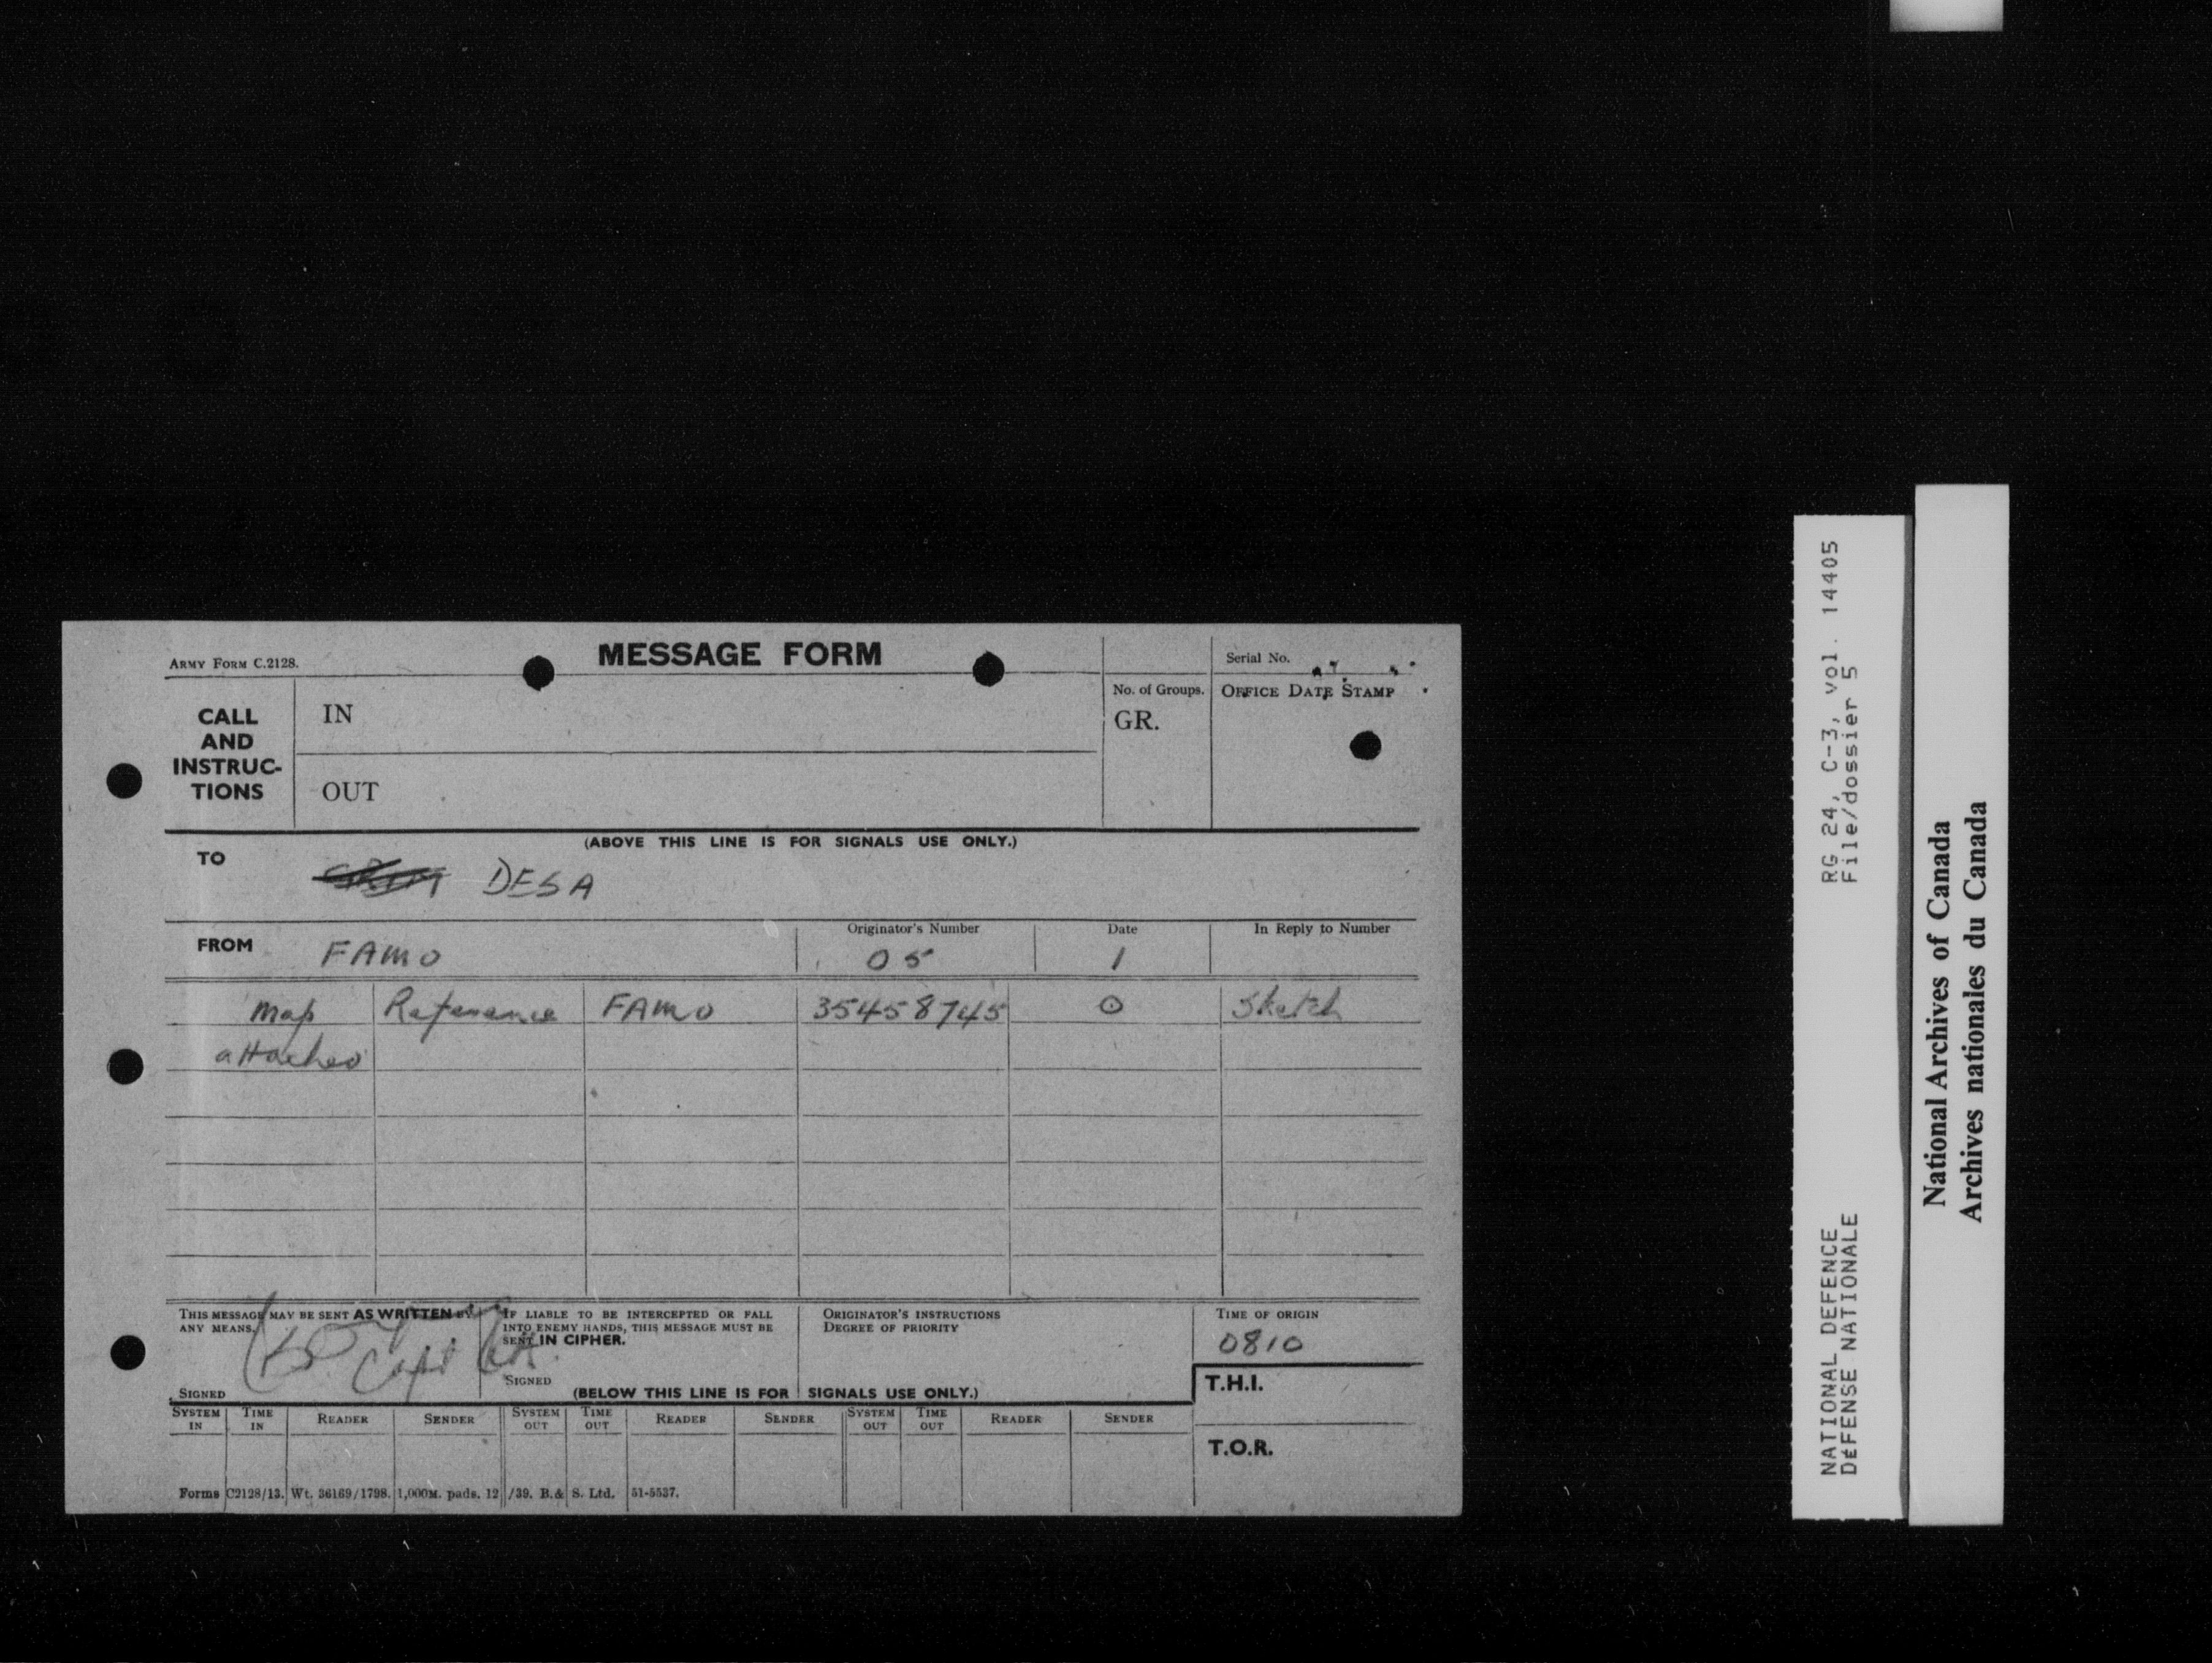 ARMY FORM C.2128.
MESSAGE FORM
Serial No.
CALL AND INSTRUC-TIONS
IN
OUT
No. of Groups.
GR.
OFFICE DATE STAMP
(ABOVE THIS LINE IS FOR SIGNALS USE ONLY.)
TO DESA
FROM FAMO
Originator's Number 05
Date 1
In Reply to Number
Map Reference FAMO 35458745 O Sketch
attached
THIS MESSAGE MAY BE SENT AS WRITTEN BY
ANY MEANS.
SIGNED
Capt
IF LIABLE TO BE INTERCEPTED OR FALL
INTO ENEMY HANDS, THIS MESSAGE MUST BE
SENT IN CIPHER.
SIGNED
ORIGINATOR'S INSTRUCTIONS
DEGREE OF PRIORITY
TIME OF ORIGIN
0810
T.H.I.
T.O.R.
(BELOW THIS LINE IS FOR SIGNALS USE ONLY.)
SYSTEM IN TIME IN READER SENDER SYSTEM OUT TIME OUT READER SENDER SYSTEM OUT TIME OUT READER SENDER
Forms C2128/13. Wt. 36169/1798. 1,000M. pads. 12/39. B.& S. Ltd. 51-5537.
NATIONAL DEFENCE RG 24, C-3, vol. 14405
DÉFENSE NATIONALE File/dossier 5
National Archives of Canada
Archives nationales du Canada